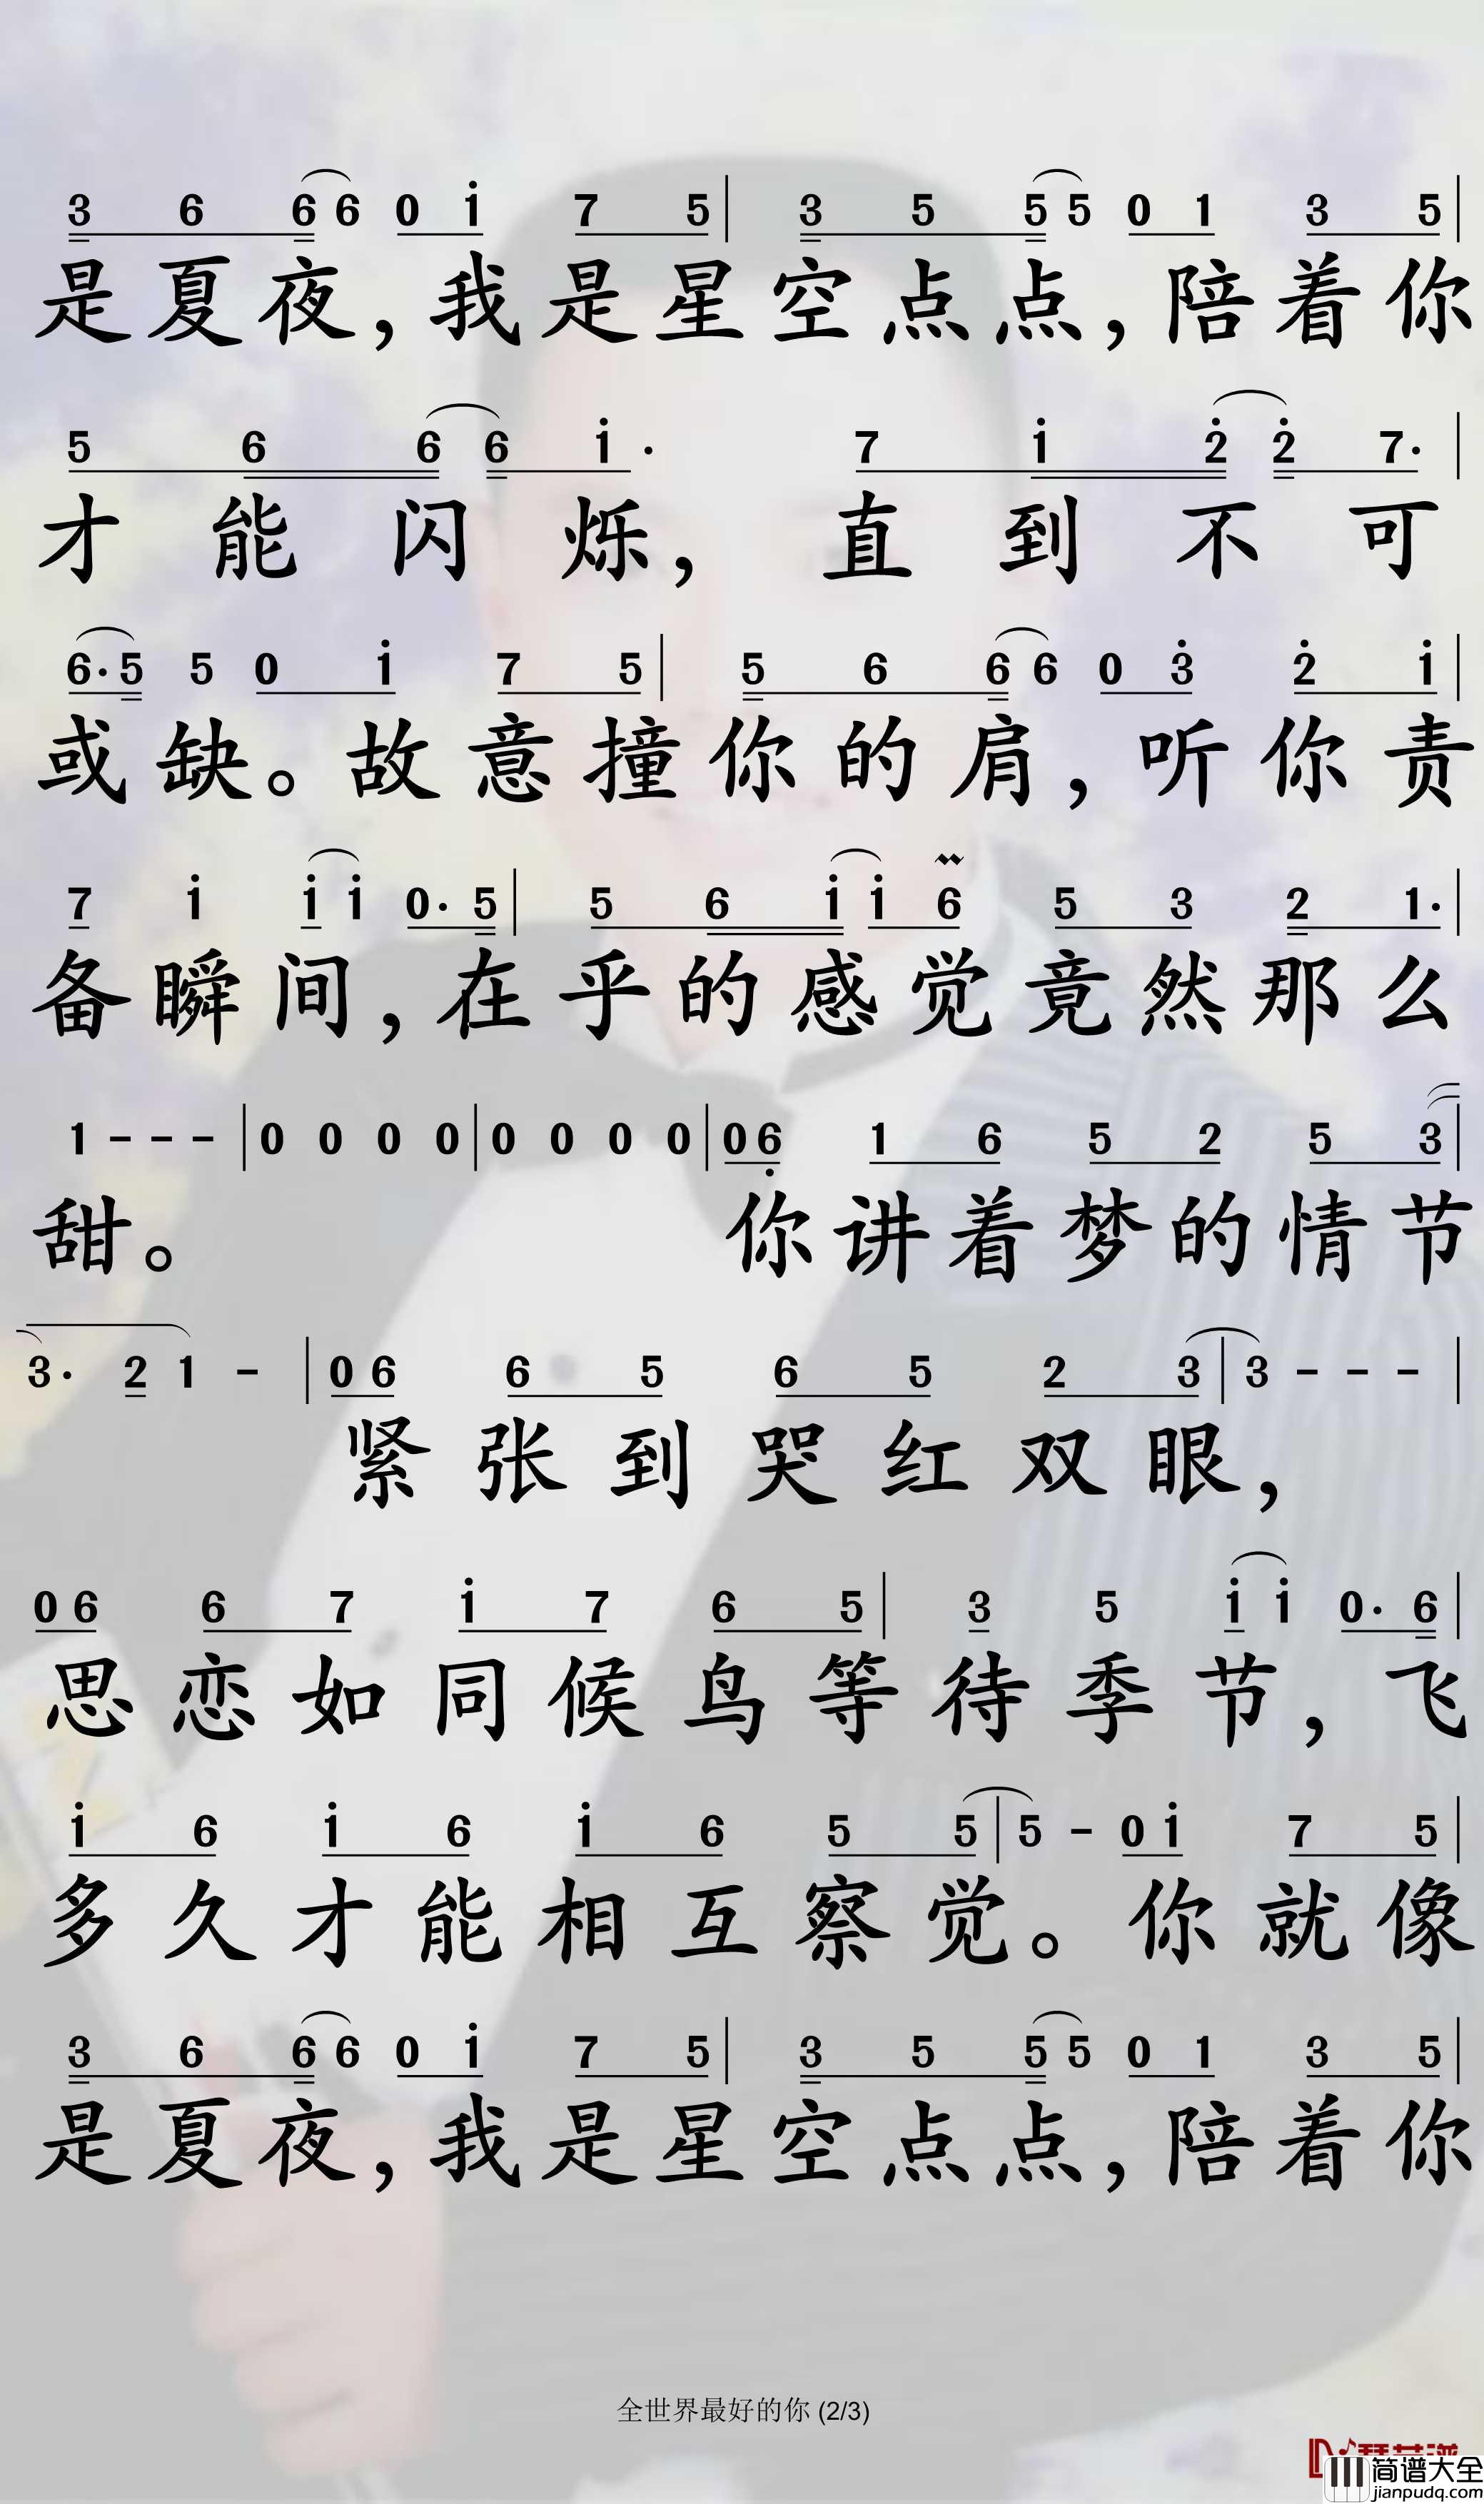 3 6 6 6 0 i 7 5 | 3 5 5 5 0 1 3 5 |
是夏夜,我是星空点点,陪着你
5 6 6 6 i· 7 i 2̇ 2̇ 7· |
才能闪烁,直到不可
6·5 5 0 i 7 5 | 5 6 6 6 0 3̇ 2̇ i |
或缺。故意撞你的肩,听你责
7 i i i 0· 5 | 5 6 i i 6 5 3 2 1· |
备瞬间,在乎的感觉竟然那么
1 - - - | 0 0 0 0 | 0 0 0 0 | 0 6̣ 1 6 5 2 5 3 |
甜。 你讲着梦的情节
3· 2 1 - | 0 6 6 5 6 5 2 3 | 3 - - - |
紧张到哭红双眼,
0 6 6 7 i 7 6 5 | 3 5 i i 0· 6 |
思恋如同候鸟等待季节,飞
i 6 i 6 i 6 5 5 | 5 - 0 i 7 5 |
多久才能相互察觉。你就像
3 6 6 6 0 i 7 5 | 3 5 5 5 0 1 3 5 |
是夏夜,我是星空点点,陪着你
全世界最好的你 (2/3)
简谱大全
jianpudq.com